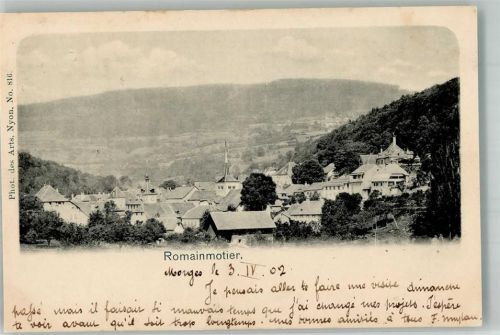 Phot. des Arts. Nyon. No. 816.
Romainmotier.
Morges le 3 IV 02
Je pensais aller te faire une visite dimanche
passé, mais il faisait si mauvais temps que j'ai changé mes projets. J'espère
te voir avant qu'il soit trop longtemps. mes bonnes amitiés à tous